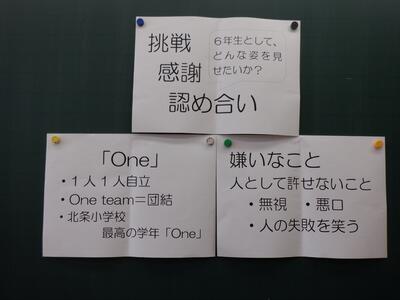 挑戦
感謝
認め合い
6年生として、
どんな姿を見
せたいか?
「One」
・1人1人自立
・One team=団結
・北条小学校
最高の学年「One」
嫌いなこと
人として許せないこと
・無視 ・悪口
・人の失敗を笑う